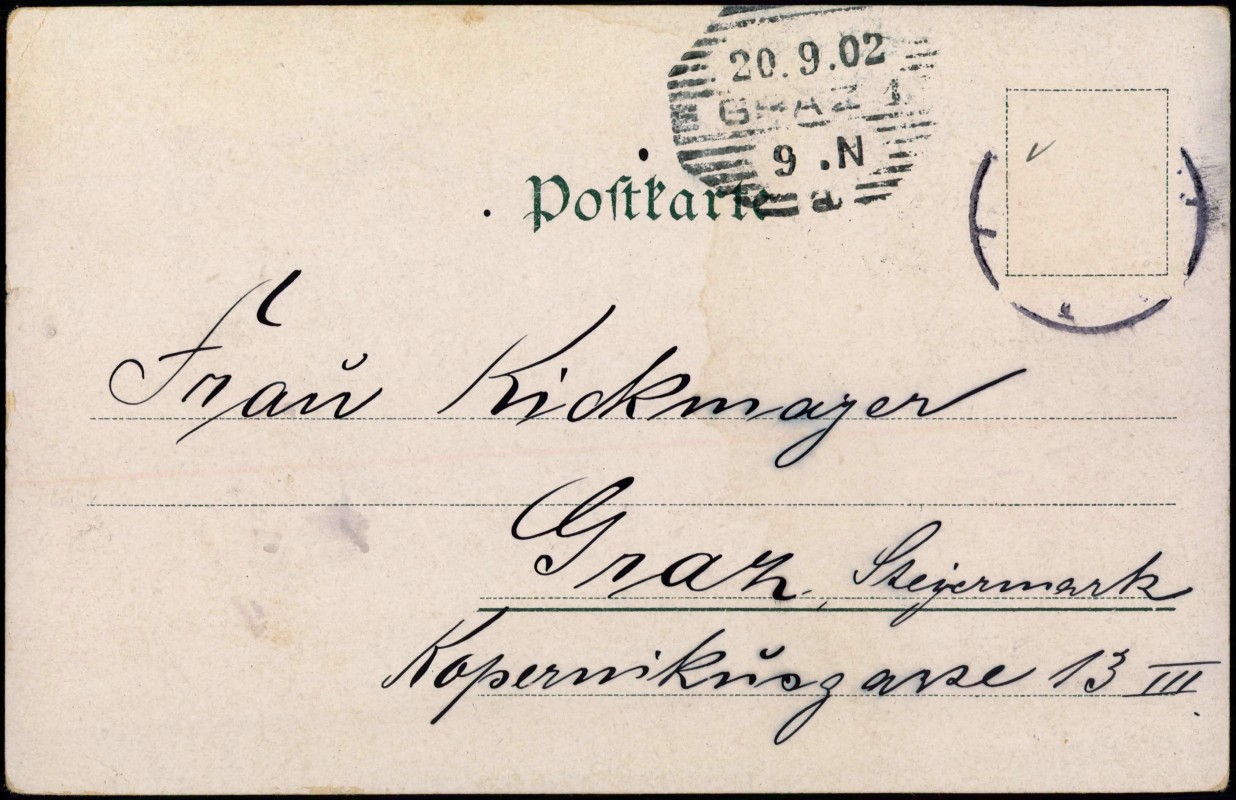 20.9.02
GRAZ 1
9.N
a
Postkarte
Frau Kickmayer
Graz, Steyermark
Kopernikusgasse 13 III